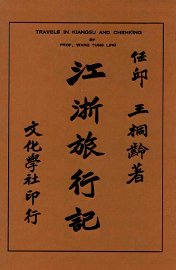 TRAVELS IN KIANGSU AND CHEHKIANG
BY
PROF. WANG TUNG LING
任邱 王桐齡著
江浙旅行記
文化學社印行